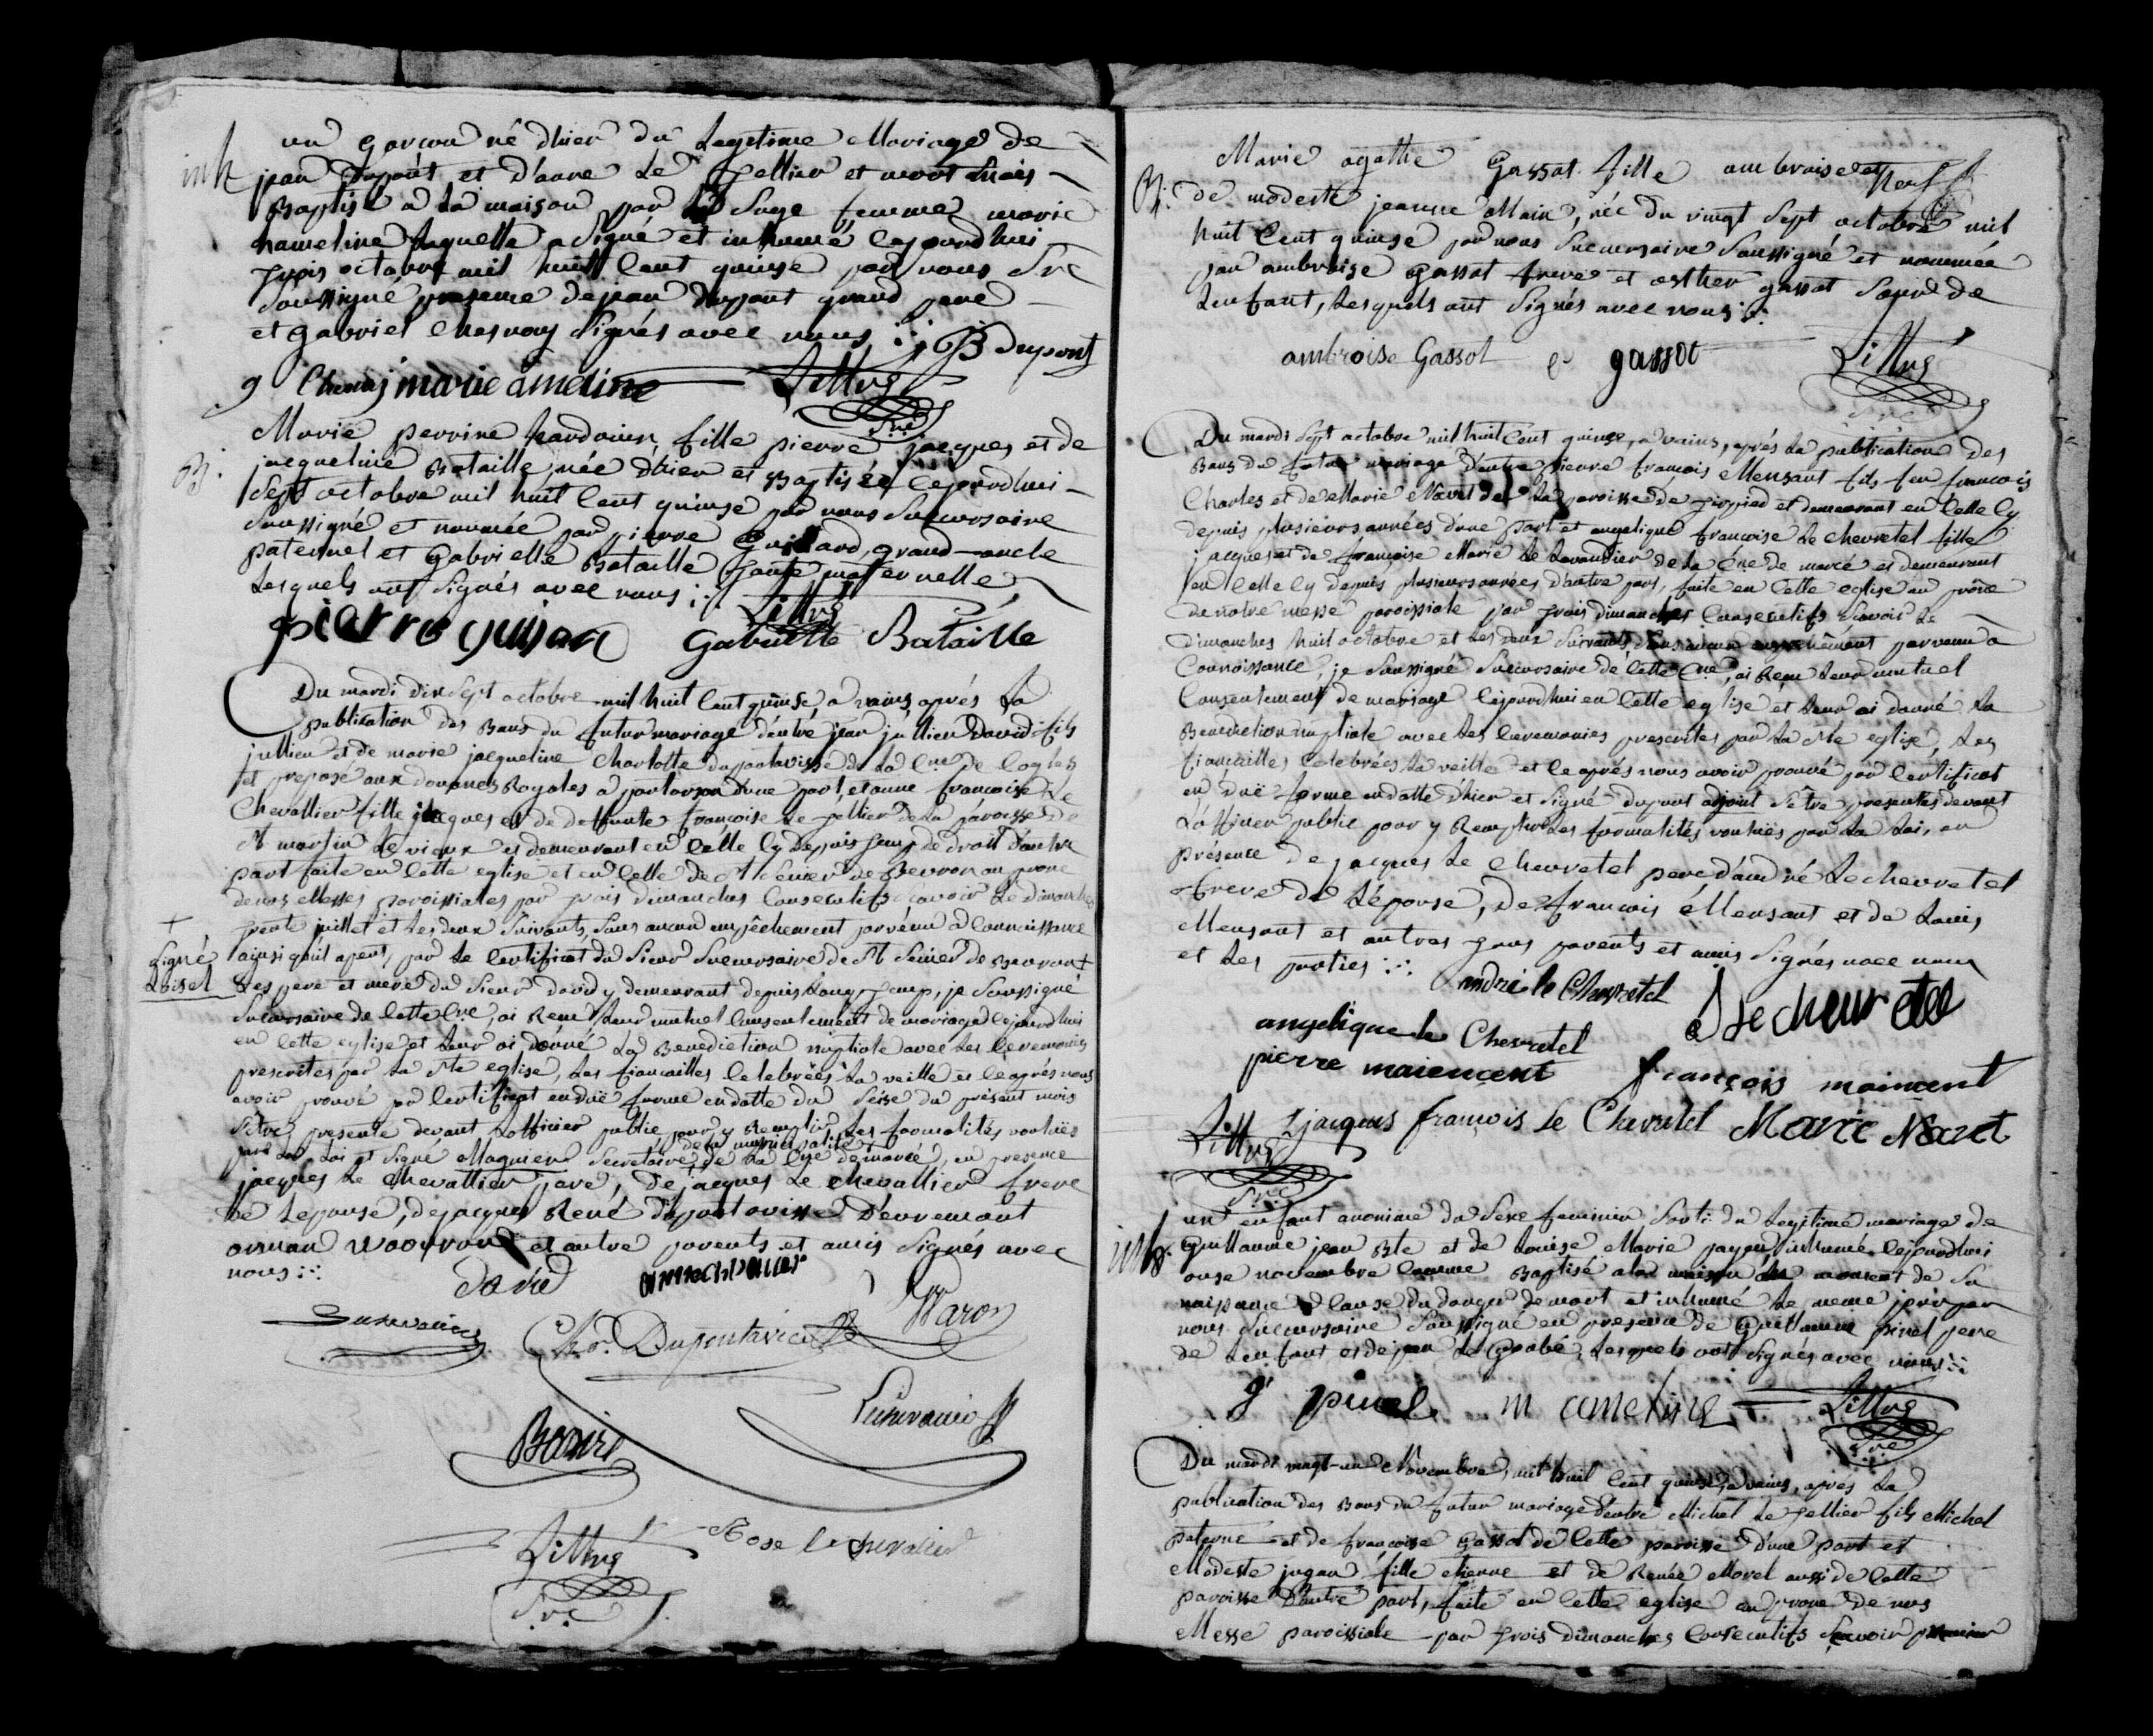 un garcon né d'hier du legitime Mariage de
inh jean Dupont et d'anne Le Tellier et mort
Baptisé a la maison par la Sage femme marie
hameline laquelle a Signé et inhumé cejourdhui
trois octobre mil huit cent quinse par nous Sre
Soussigné presence de jean dupont grand pere
et gabriel Chesnay Signés avec nous
JB dupont
g Chesnay marie ameline Littré
Sre
Marie perrine hardouin fille pierre jacques et de
B. jacqueline Bataille, née d'hier et Baptisée cejourdhui
Sept octobre mil huit cent quinse par nous Succursaire
Soussigné et nommée par pierre grand-oncle
paternel et Gabrielle Bataille tante maternelle
Lesquels ont Signés avec nous
Littré
pierre Gabrielle Bataille
Du mardi dix Sept octobre mil huit cent quinse a vains, après La
publication des Bans du futur mariage d'entre jean jullien David fils
jullien et de marie jacqueline Charlotte dupontavisse de la Cne de
et preposé aux douanes Royales a pontorson d'une part, et anne francoise Le
Chevallier fille jacques et de deffunte francoise Le Tellier de la paroisse de
St martin Le vieux et demeurant en Celle Cy depuis temps de droit d'autre
part faite en cette eglise et en celle de St Senier de Beuvron au prone
de nos Messes paroissiales par trois dimanches Consecutifs Scavoir Le dimanche
+
trente juillet et Les deux Suivants, Sans aucun empêchement parvenu a Connaissance
Signé ainsi qu'il apert, par Le Certificat du Sieur Succursaire de St Senier de Beuvron +
Loisel Les pere et mere du Sieur david y demeurant depuis Long temp, je Soussigné
Succursaire de Cette Cne, ai Recu Leur mutuel Consentement de mariage Cejourdhui
en Cette eglise et Leur ai donné La Benediction nuptiale avec Les Ceremonies
prescrites par La Ste eglise, Les fiancailles Celebrées La veille et Ce après nous
avoir prouvé par Certificat en duë forme en datte du Seise du présent mois
S'etre presenté devant L'officier public pour y Remplir Les formalités vouluës
de la municipalité
par La Loi et Signé Secretaire de La Cne de marcé, en presence
jacques Le Chevallier pere, de jacques Le Chevallier frere
de Lepouse, de jacques René dupontavisse
et autre parents et amis Signés avec
nous
David
Waron
Cho. Dupontavice
Lechevalier
Rose le chevalier
Littré
Sre
Marie agathe Gassot fille ambroise et
B. de modeste jeanne Main, née du vingt Sept octobre mil
huit Cent quinse par nous Succursaire Soussigné et nommée
par ambroise gassot frere et esther gassot Soeur de
Lenfant, Lesquels ont Signés avec nous
ambroise Gassot e gassot Littré
Sre
Du mardi Sept octobre mil huit Cent quinse, a vains, après La publication des
Bans du futur mariage d'entre pierre francois Mensant fils feu francois
Charles et de Marie Navet de La paroisse de et demeurant en Celle Cy
depuis plusieurs années d'une part et angelique francoise Le Chevretel fille
jacques et de francoise Marie Le Lavandier de La Cne de marcé et demeurant
en Celle Cy depuis plusieurs années d'autre part, faite en Cette eglise au prône
de notre messe paroissiale par trois dimanches Consecutifs Scavoir Le
Dimanches huit octobre et Les deux Suivants, Sans aucun empêchement parvenu a
Connoissance, je Soussigné Succursaire de Cette Cne, ai Recu Leur mutuel
Consentement de mariage Cejourdhui en Cette eglise et Leur ai donné La
Benediction nuptiale avec Les Ceremonies prescrites par La Ste eglise, Les
fiancailles Celebrées La veille et Ce après nous avoir prouvé par Certificat
en duë forme en datte d'hier et Signé dupont adjoint S'être presentés devant
L'officier public pour y Remplir Les formalités vouluës par La Loi, en
présence de jacques Le Chevretel pere d'andré Le chevretel
frere de L'épouse, de francois Mensant et de Louis
Mensant et autres parents et amis Signés avec nous
et Les parties
andré le Chevretel
angelique le Chevretel
j Lechevretel
pierre maiencent françois maincent
Littré j jacques françois le Chevretel Marie Navet
Sre
un enfant anonime du Sexe feminin Sorti du Legitime mariage de
inh. Guillaume jean Bte et de Louise Marie inhumé Cejourdhui
onse novembre Comme Baptisé a La maison au moment de Sa
naissance a Cause du danger de mort et inhumé Le meme jour par
nous Succursaire Soussigné en presence de Guillaume pinel pere
de Lenfant et de jean Lesquels ont Signés avec nous
g pinel m ameline Littré
Sre
Du mardi vingt-un Novembre, mil huit Cent quinse, a vains, après La
publication des Bans du futur mariage d'entre Michel Le Tellier fils Michel
paterne et de francoise Gassot de Cette paroisse d'une part et
Modeste jugan fille etienne et de Renée Morel aussi de Cette
paroisse d'autre part, faite en Cette eglise au prone de nos
Messe paroissiale par trois dimanches Consecutifs Scavoir premier